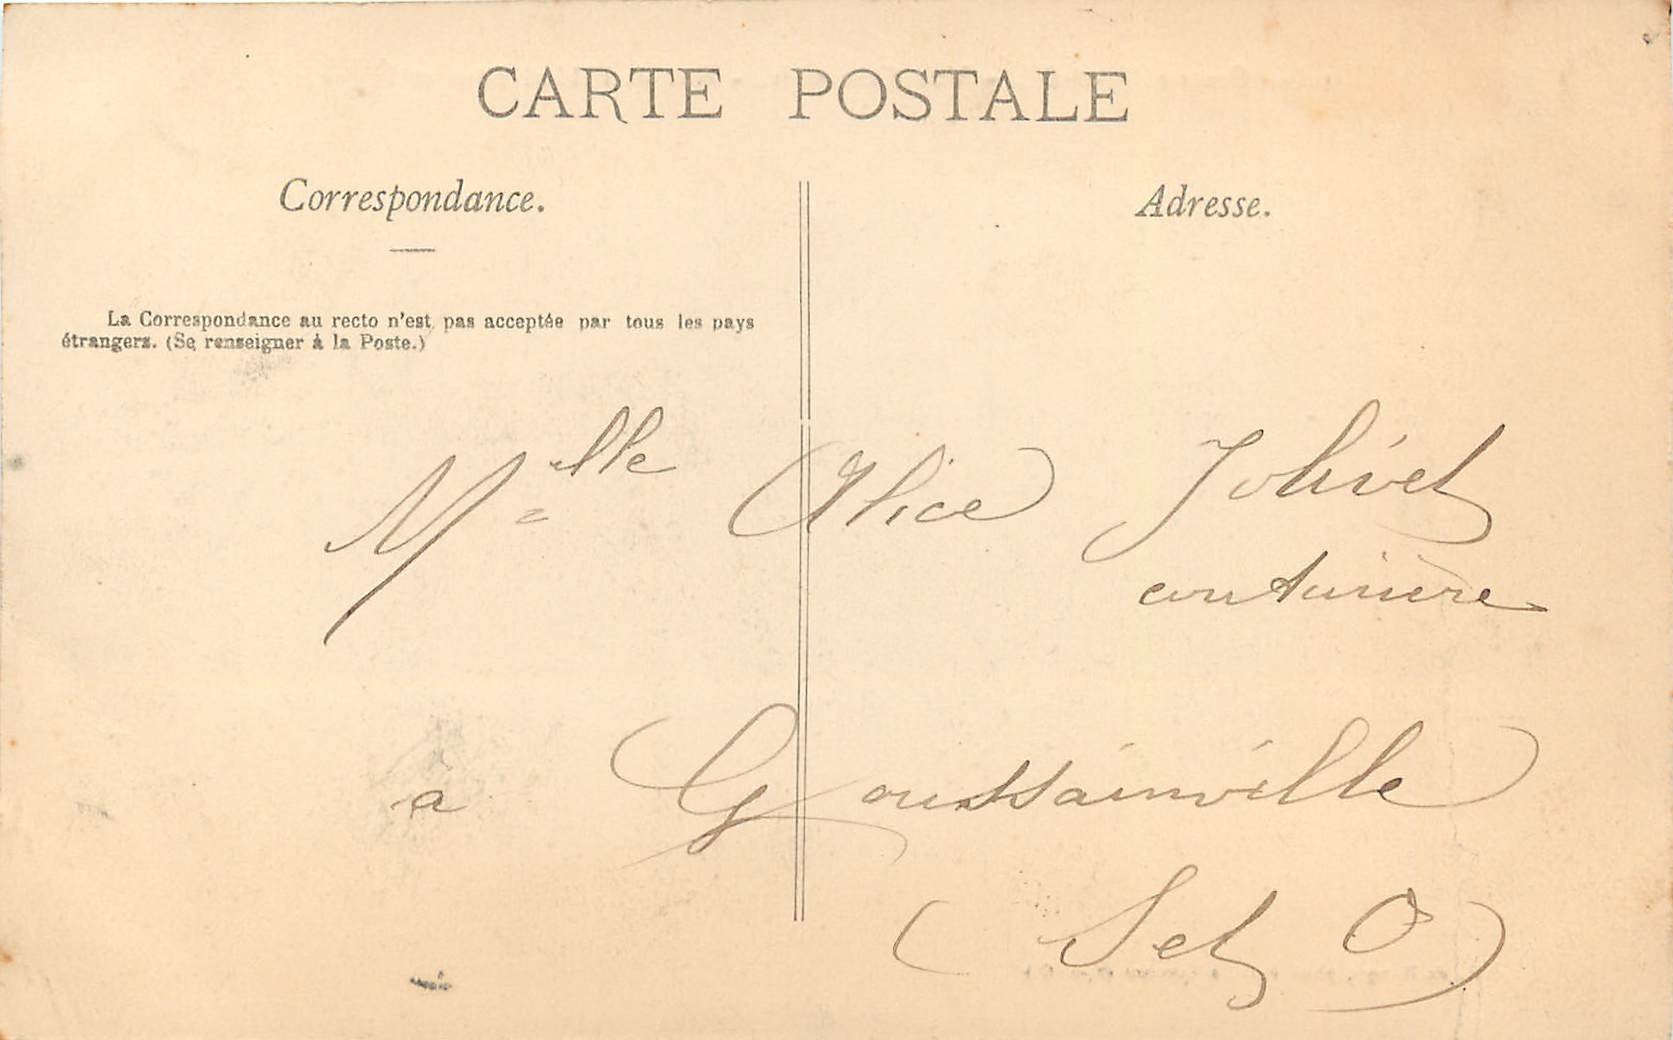 CARTE POSTALE
Correspondance.
Adresse.
La Correspondance au recto n'est pas acceptée par tous les pays
étrangers. (Se renseigner à la Poste.)
Mlle Alice Jolivet
couturière
à Goussainville
(S et O)